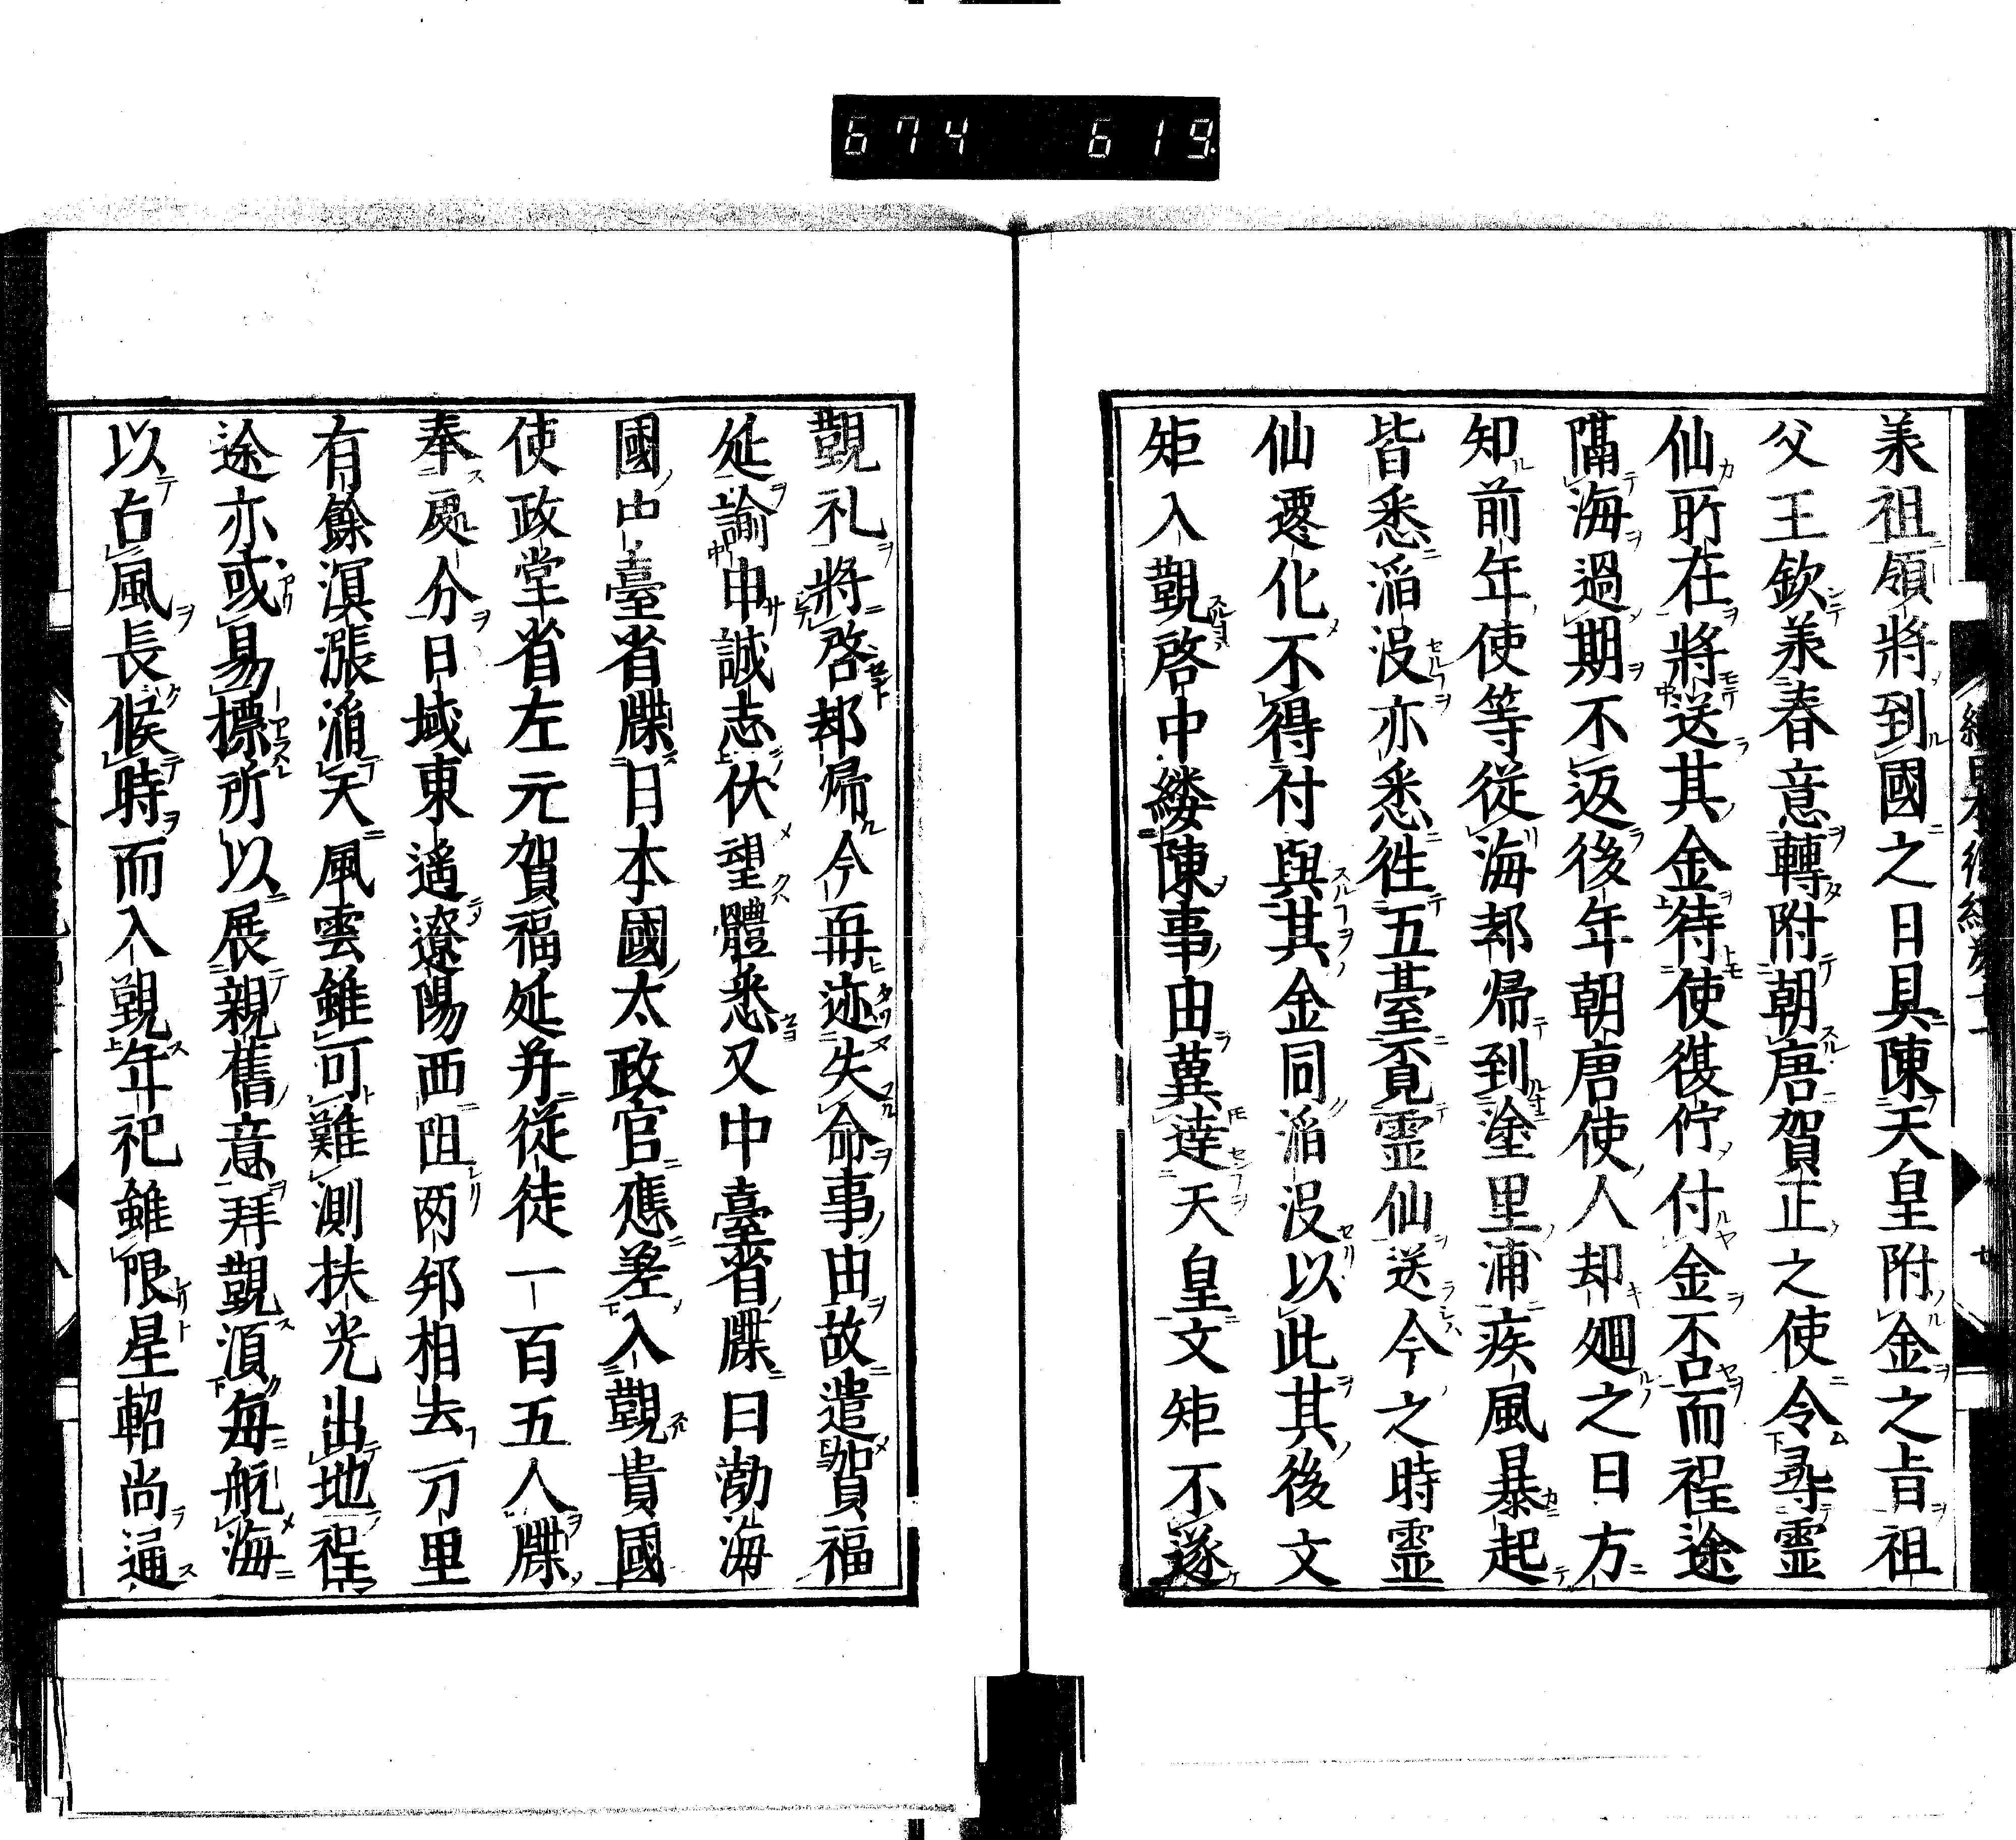 674 619
羕祖領將到國之日具陳天皇附金之旨祖
父王欽羕春意轉附朝唐賀正之使令尋霊
仙所在將送其金待使復佇付金否而程途
隔海過期不返後年朝唐使人却廻之日方
知前年使等従海却帰到塗里浦疾風暴起
皆悉滔没亦悉徃五臺覓霊仙送今之時霊
仙遷化不得付與其金同滔没以此其後文
矩入覲啓中縷陳事由冀達天皇文矩不遂
覲礼將啓却帰今再迹失命事由故遣賀福
延諭申誠志伏望體悉又中臺省牒曰渤海
國中臺省牒日本國太政官應差入覲貴國
使政堂省左元賀福延并従徒一百五人牒
奉處分日域東遥遼陽西阻两邦相去万里
有餘溟漲滔天風雲雖可難測扶光出地程
途亦或易標所以展親舊意拜覲湏每航海
以占風長候時而入覲年祀雖限星軺尚通